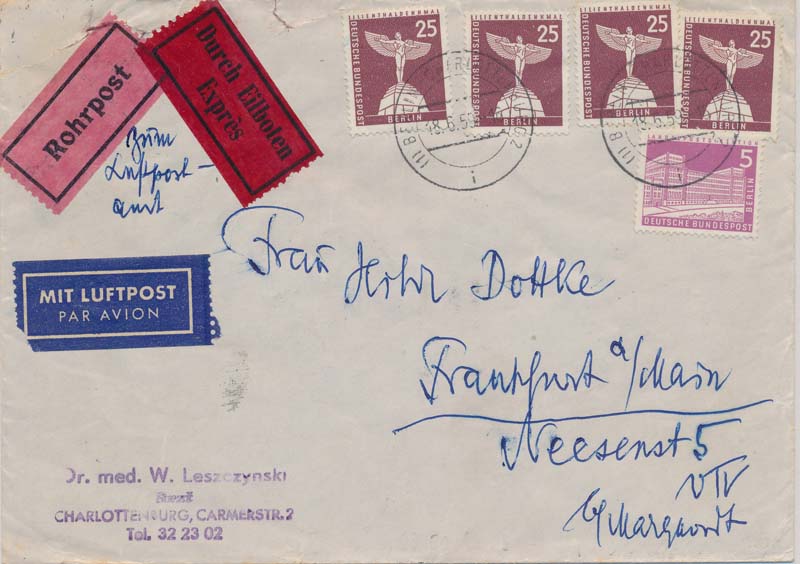 Rohrpost
Durch Eilboten
Exprès
zum
Luftpost-
amt
25
LILIENTHALDENKMAL
DEUTSCHE BUNDESPOST
BERLIN
25
LILIENTHALDENKMAL
DEUTSCHE BUNDESPOST
BERLIN
25
LILIENTHALDENKMAL
DEUTSCHE BUNDESPOST
BERLIN
25
LILIENTHALDENKMAL
DEUTSCHE BUNDESPOST
BERLIN
5
BERLIN
DEUTSCHE BUNDESPOST
MIT LUFTPOST
PAR AVION
Frau Dottke
Frankfurt a/Main
Neesenst 5
VII
Dr. med. W. Leszczynski
Arzt
CHARLOTTENBURG, CARMERSTR. 2
Tel. 32 23 02